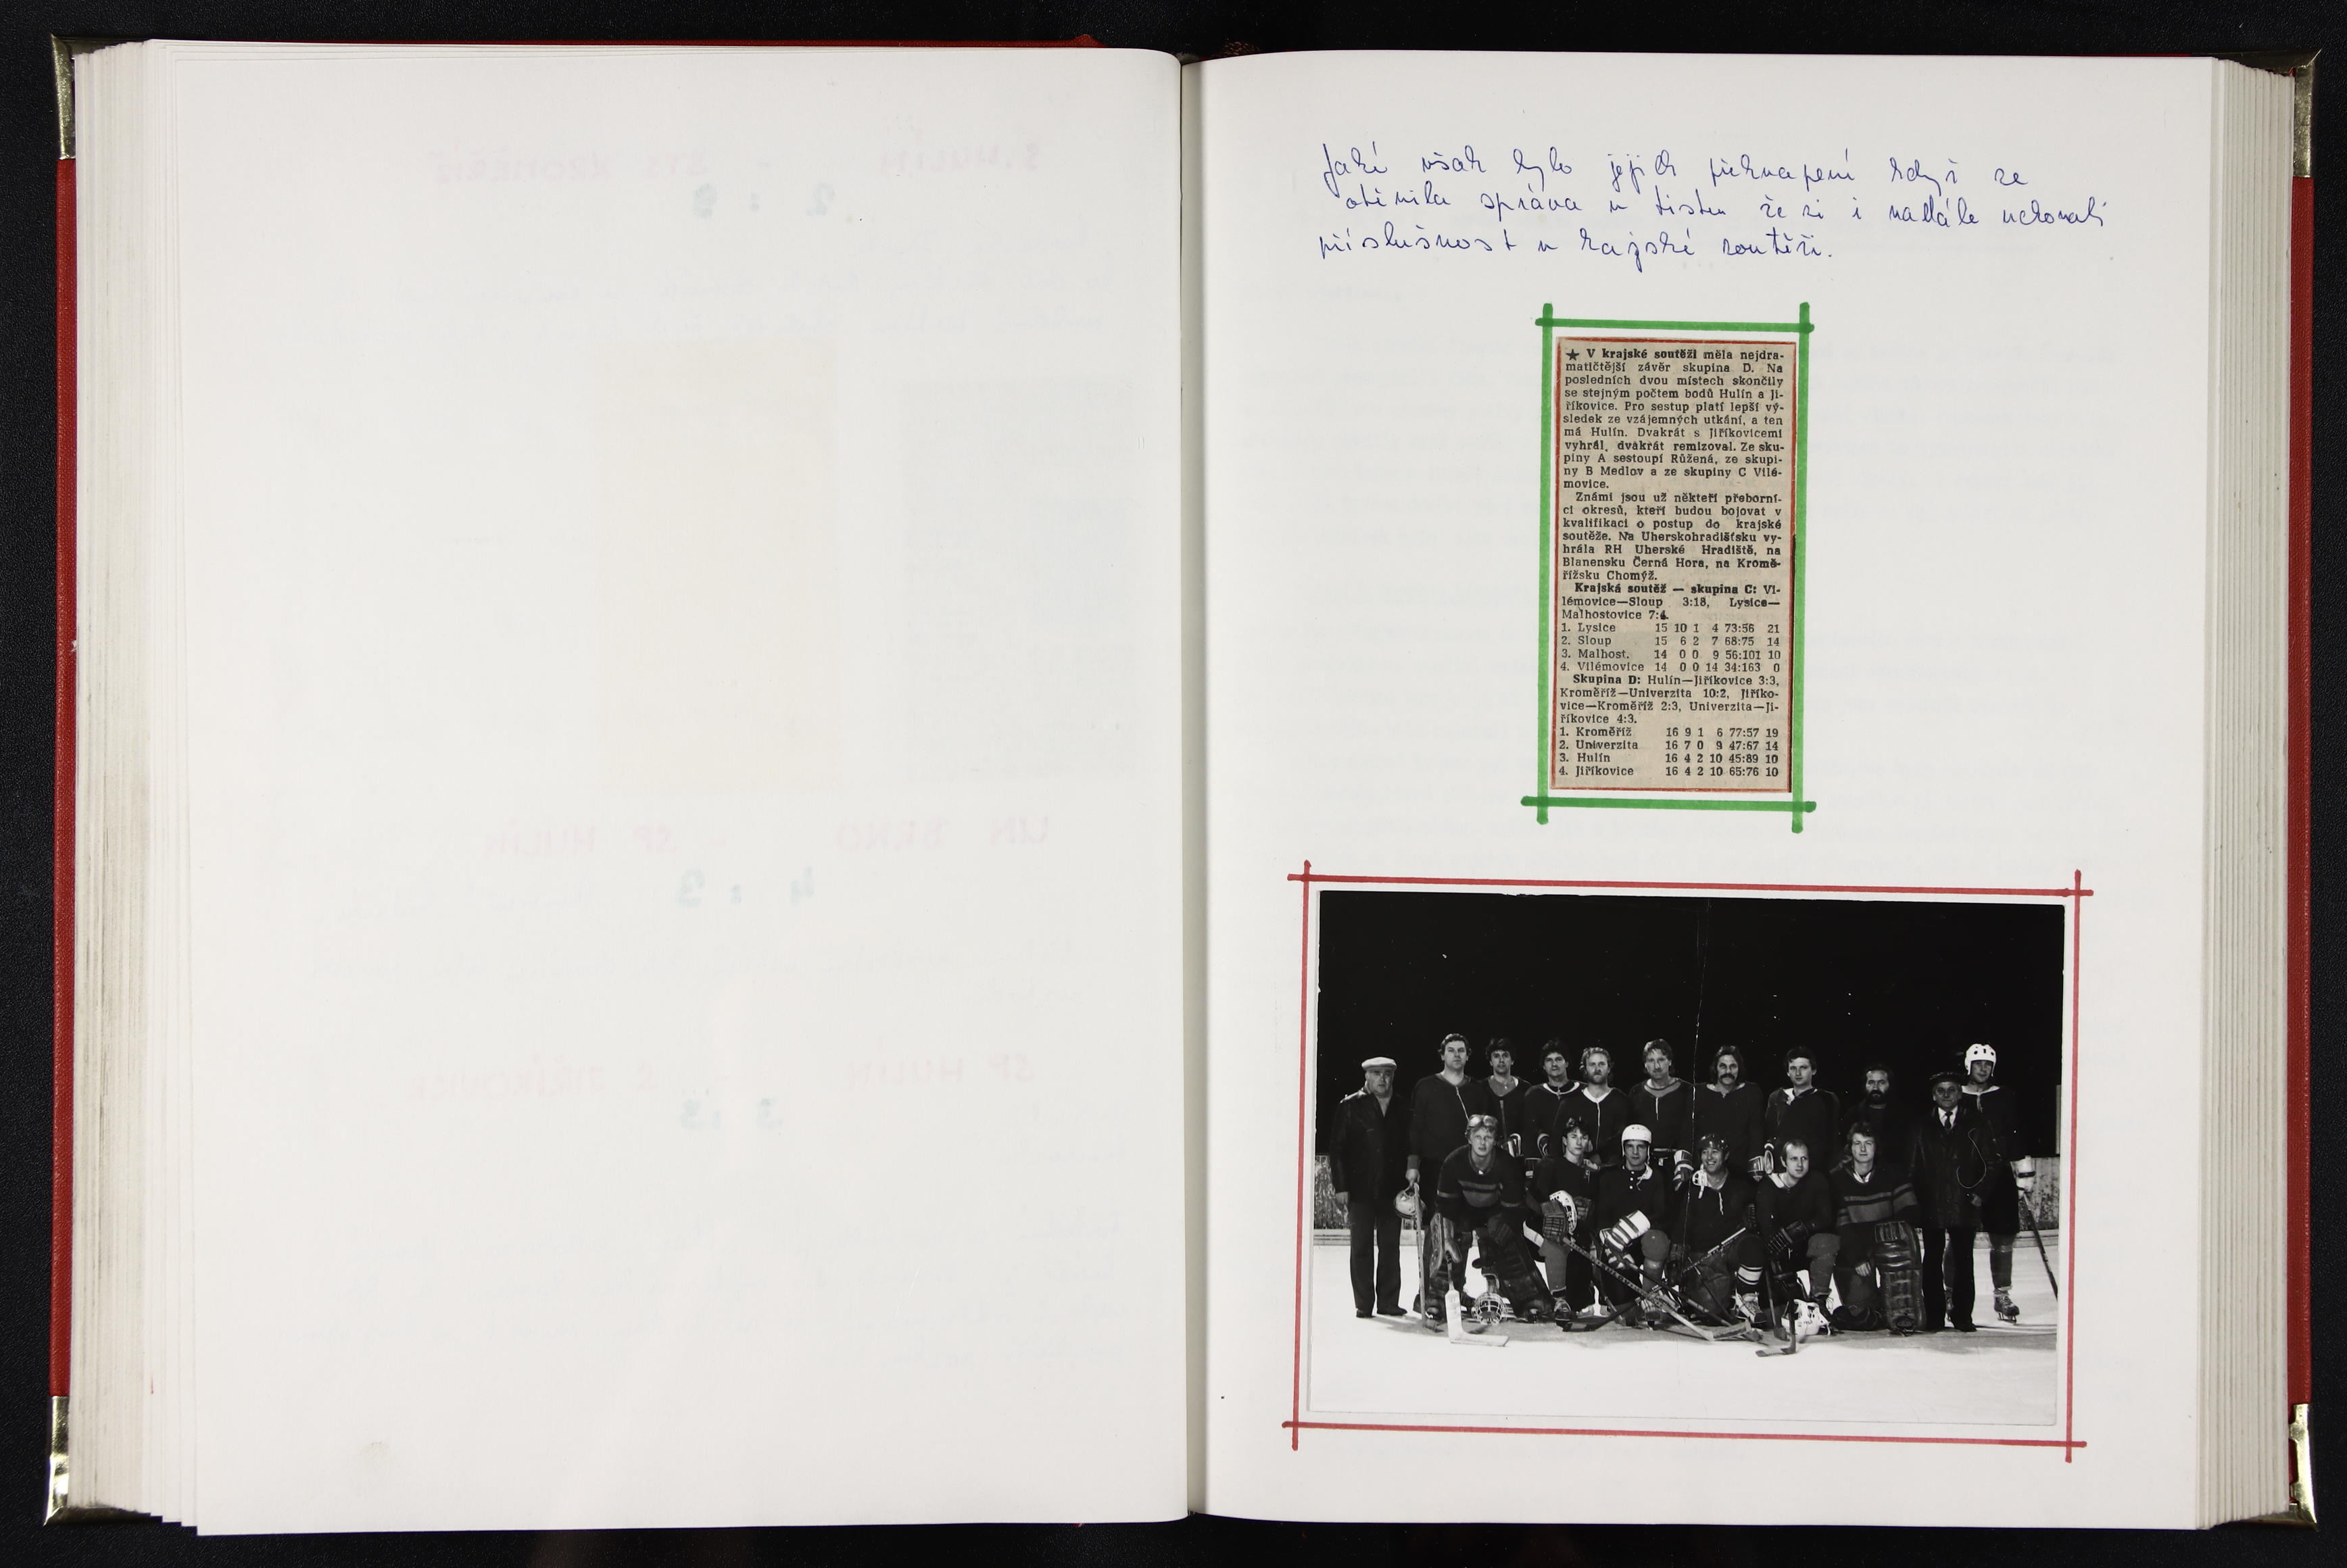 Jaké však bylo jejich překvapení když se
objevila správa v tisku že si i nadále uchovali
příslušnost v krajské soutěži.
★ V krajské soutěži měla nejdra-
matičtější závěr skupina D. Na
posledních dvou místech skončily
se stejným počtem bodů Hulín a Ji-
říkovice. Pro sestup platí lepší vý-
sledek ze vzájemných utkání, a ten
má Hulín. Dvakrát s Jiříkovicemi
vyhrál, dvakrát remizoval. Ze sku-
piny A sestoupí Růžená, ze skupi-
ny B Medlov a ze skupiny C Vilé-
movice.
Známi jsou už někteří přeborní-
ci okresů, kteří budou bojovat v
kvalifikaci o postup do krajské
soutěže. Na Uherskohradišťsku vy-
hrála RH Uherské Hradiště, na
Blanensku Černá Hora, na Kromě-
řížsku Chomýž.
Krajská soutěž — skupina C: Vi-
lémovice—Sloup 3:18, Lysice—
Malhostovice 7:4.
1. Lysice 15 10 1 4 73:56 21
2. Sloup 15 6 2 7 68:75 14
3. Malhost. 14 0 0 9 56:101 10
4. Vilémovice 14 0 0 14 34:163 0
Skupina D: Hulín—Jiříkovice 3:3,
Kroměříž—Univerzita 10:2, Jiříko-
vice—Kroměříž 2:3, Univerzita—Ji-
říkovice 4:3.
1. Kroměříž 16 9 1 6 77:57 19
2. Univerzita 16 7 0 9 47:67 14
3. Hulín 16 4 2 10 45:89 10
4. Jiříkovice 16 4 2 10 65:76 10